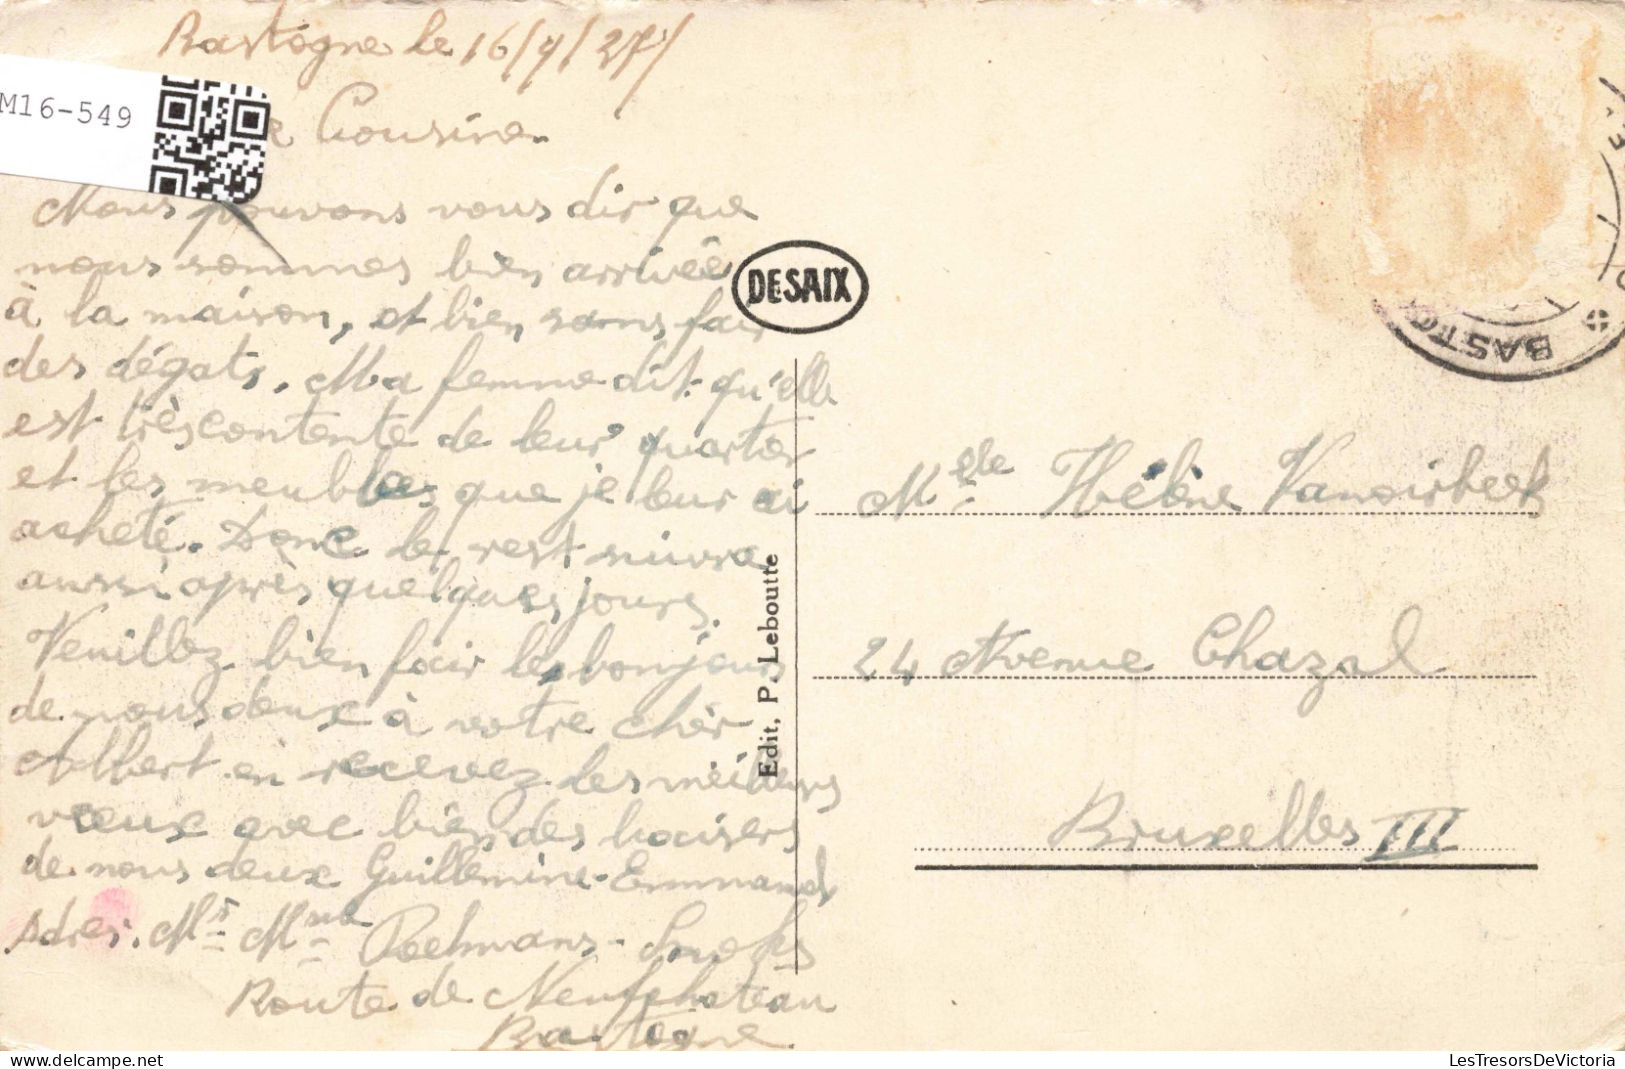 Bastogne le 16/9/27/
M16-549
Cousine.
Nous pouvons vous dir que
nous sommes bien arrivée
à la maison, et bien sans fair
des dégats. Ma femme dit qu'elle
est très contente de leur quartier
et les meubles que je leur ai
acheté. Donc le rest suivra
aussi après quelques jours.
Veuillez bien fair les bonjours
de nous deux à votre chèr
Albert en recevez les meilleurs
vœux avec bien des baisers
de nous deux Guillemine-Emmanuel
Adres. Mr Mme Poelmans-
Route de Neufchateau
Bastogne.
DESAIX
Edit. P. Leboutte
BASTOG
Melle Hélène Vanoirbeek
24 Avenue Chazal
Bruxelles III
LesTresorsDeVictoria